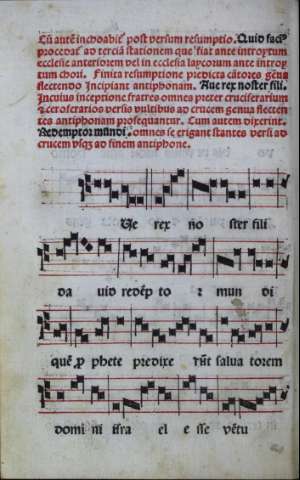 Cū autē inchoabit̄ post versum resumptio. Quid faci⁹
procedat ad terciā stationem que fiat ante introytum
ecclesie anteriorem vel in ecclesia laycorum ante introy
tum chori. Finita resumptione predicta cātores genu
flectendo Incipiant antiphonam. Aue rex noster fili.
Incuius inceptione fratres omnes preter cruciferarium
⁊ ceroferarios versis vultibus ad crucem genua flecten
tes antiphonam prosequantur. Cum autem dixerint.
Redemptor mundi. omnes se erigant stantes versi ad
crucem vsqȝ ad finem antiphone.
Ue rex no ster fili
da uid redēp to r mun di
quē ꝓ phete predixe rūt salua torem
domui isra el e sse vētu